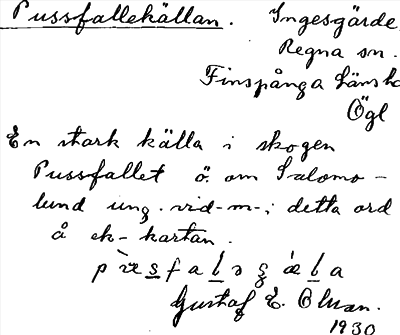 Pussfallekällan. Ingesgärde
Regna sn.
Finspånga länsh
Ögl
En stark källa i skogen
Pussfallet ö. om Salomo-
lund ung. vid -m- i detta ord
å ek-kartan.
Gustaf E. Olsson.
1930